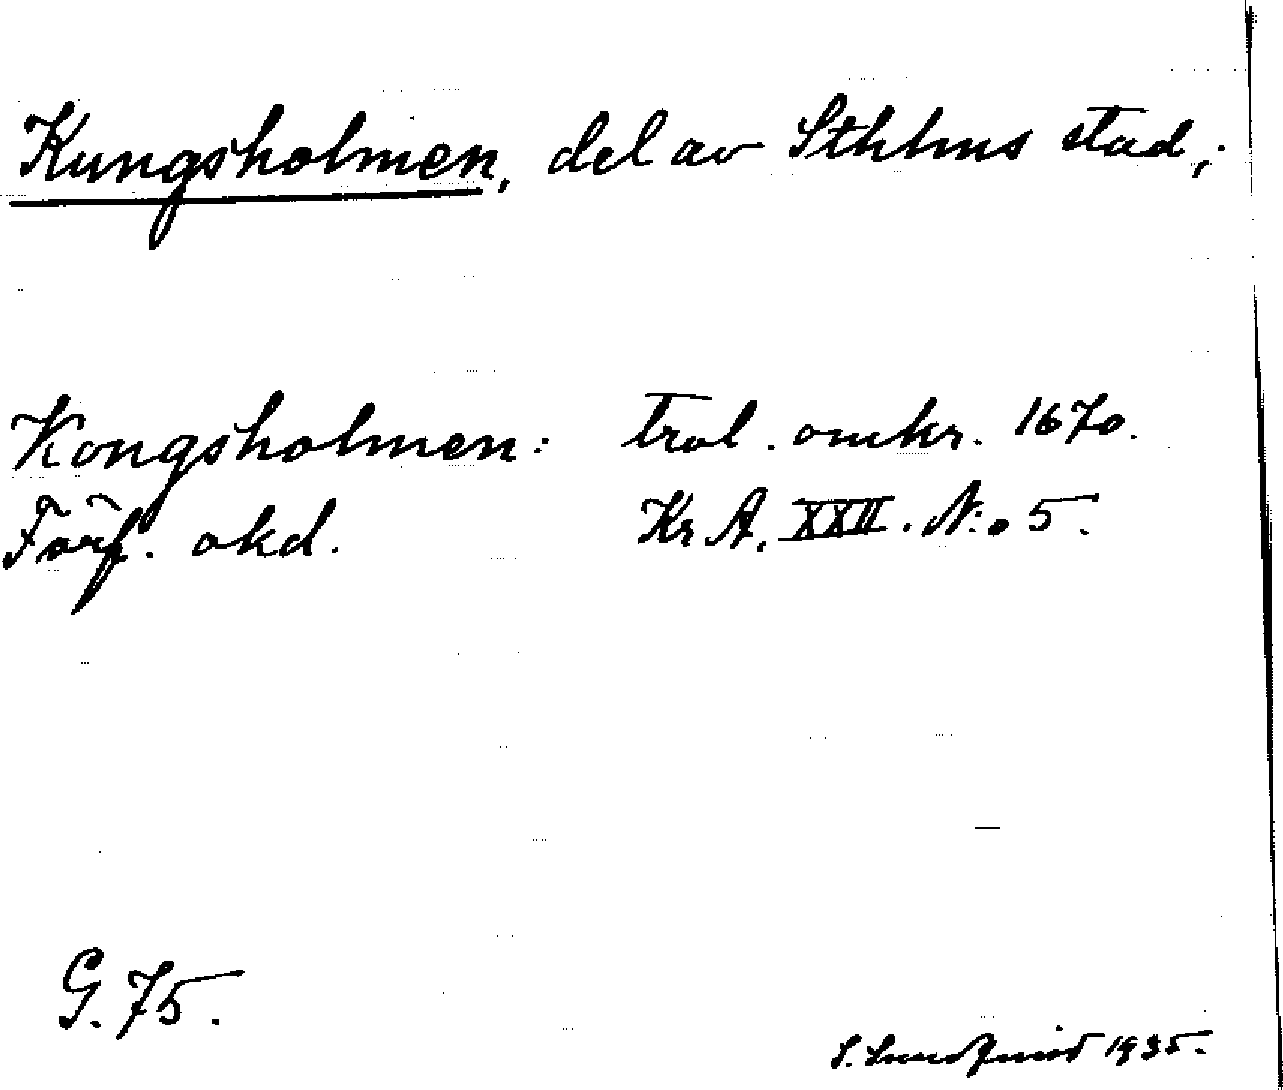 Kungsholmen, del av Sthlms stad,.
Kongsholmen: trol. omkr. 1670.
Förf. okd. Kr. A. XXII. N:o 5.
G. 75.
S. Lundqvist 1935.